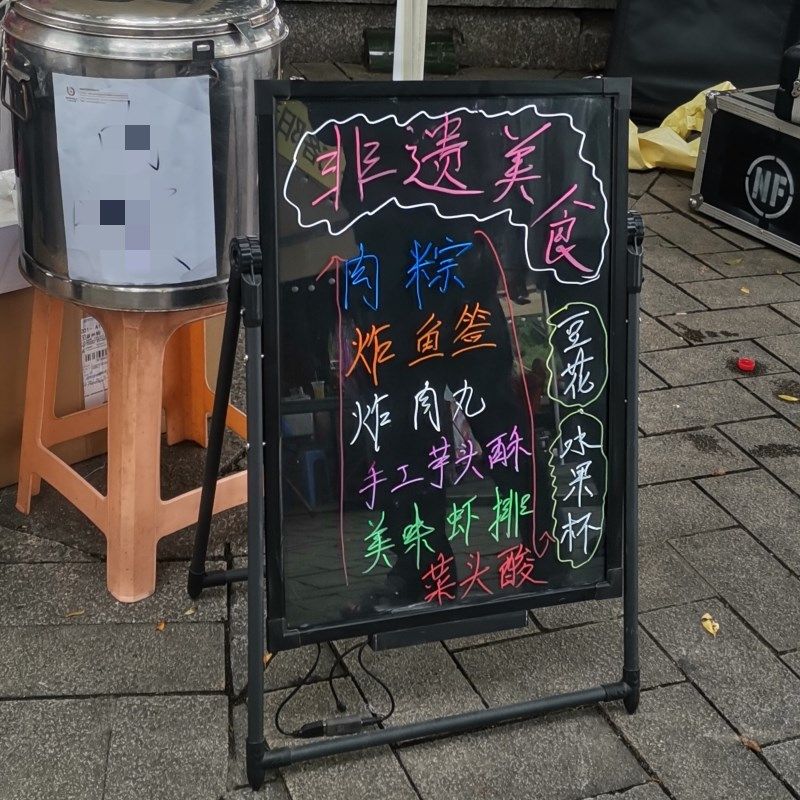 非遗美食
肉粽
炸鱼签
炸肉丸
手工芋头酥
美味虾排
菜头酸
豆花
水果杯
NF